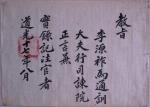 教旨
李源祚爲通訓
大夫行司諫院
正言兼
實錄記注官者
道光十七年八月